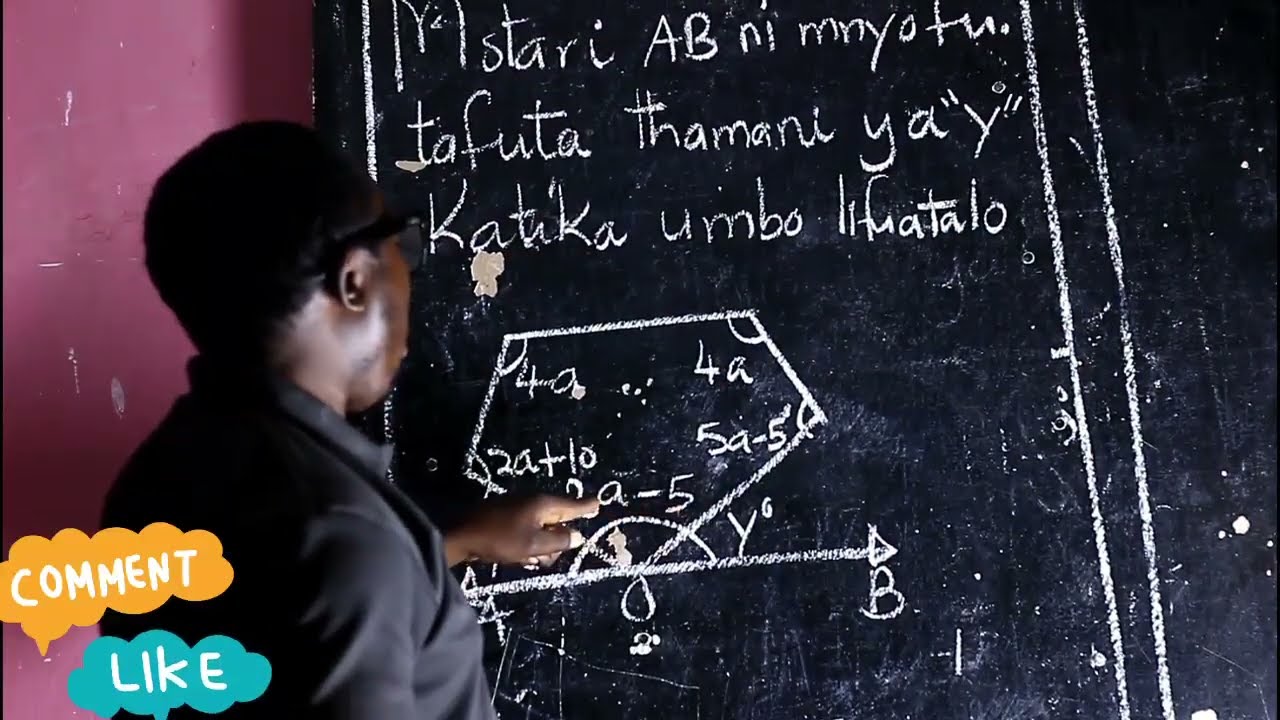 Mstari AB ni mnyofu.
tafuta thamani ya "Y"
Katika umbo lifuatalo
4a
4a
5a-5
2a+10
a-5
Y°
O
B
COMMENT
LIKE